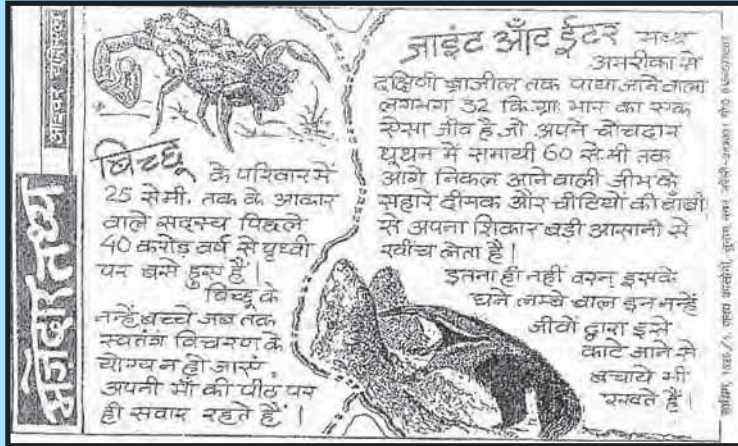 मज़ेदार तथ्य
बिच्छू के परिवार में
25 से.मी. तक के आकार
वाले सदस्य पिछले
40 करोड़ वर्ष से पृथ्वी
पर बसे हुए हैं।
बिच्छू के
नन्हें बच्चे जब तक
स्वतंत्र विचरण के
योग्य न हो जाएं,
अपनी माँ की पीठ पर
ही सवार रहते हैं।
जाइंट आँट ईटर मध्य
अमरीका से
दक्षिणी ब्राजील तक पाया जाने वाला
लगभग 32 कि.ग्रा. भार का एक
ऐसा जीव है जो अपने चोंचदार
थूथन में समायी 60 से.मी तक
आगे निकल आने वाली जीभ के
सहारे दीमक और चींटियों की बाँबी
से अपना शिकार बड़ी आसानी से
खींच लेता है।
इतना ही नहीं वरन् इसके
घने लम्बे बाल इन नन्हें
जीवों द्वारा इसे
काटे जाने से
बचाये भी
रखते हैं।